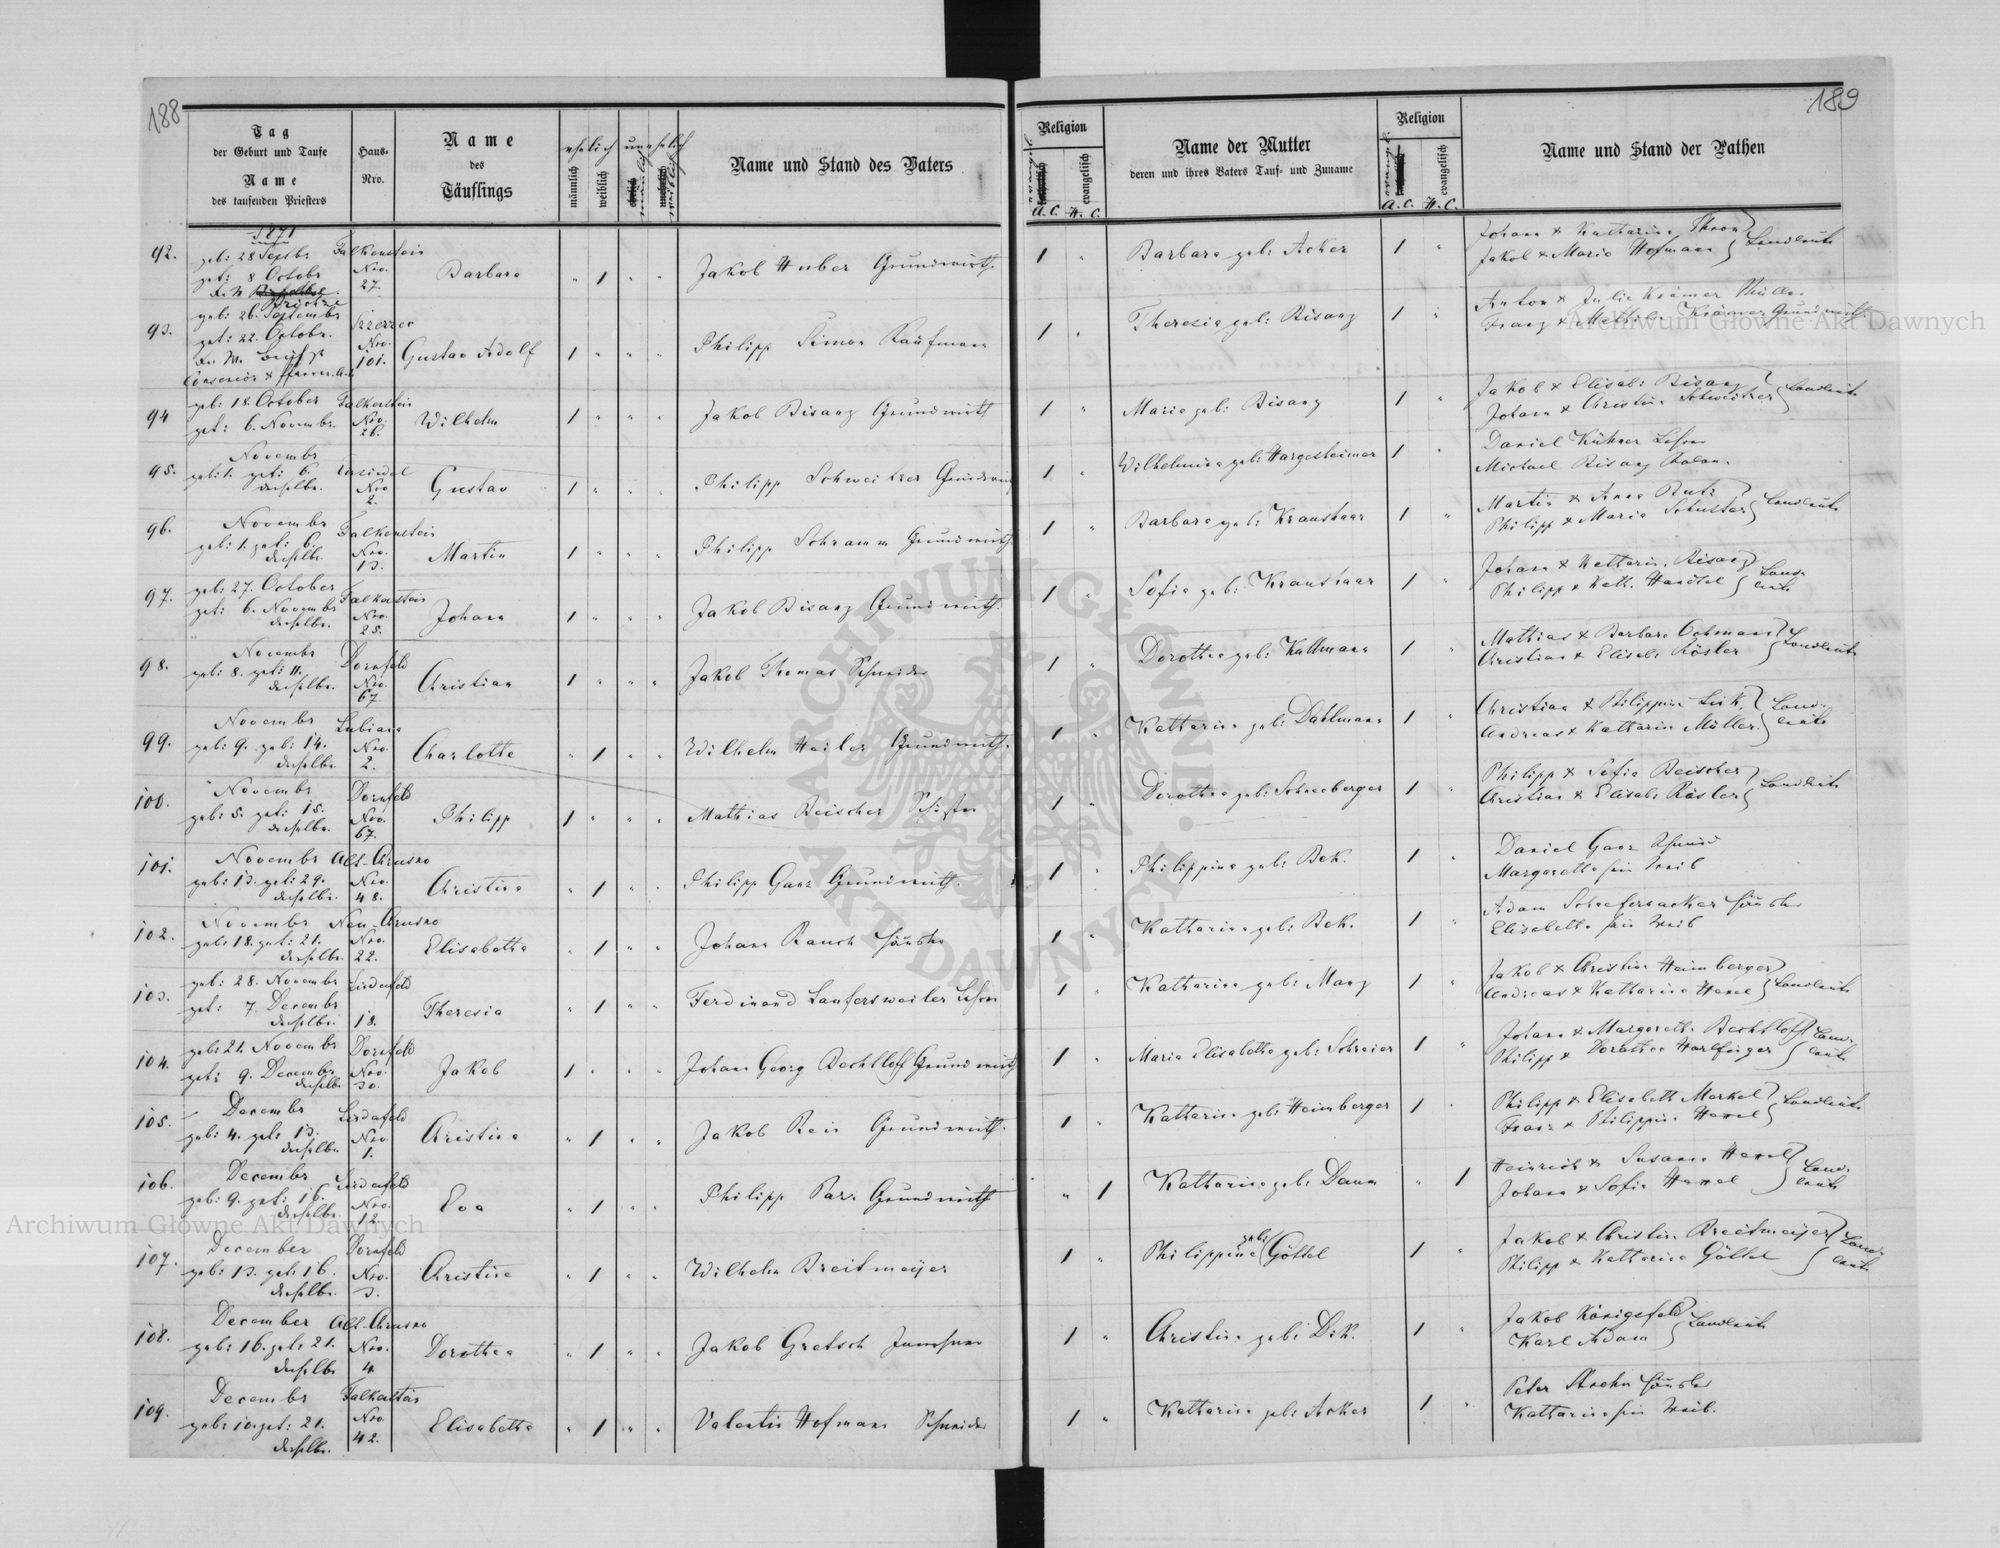 188
189
Tag
der Geburt und Taufe
Name
des taufenden Priesters
Haus-
Nro.
Name
des
Täuflings
ehelich unehelich
männlich
weiblich
Name und Stand des Vaters
Religion
evangelisch
A.C. H.C.
Name der Mutter
deren und ihres Vaters Tauf- und Zuname
Religion
evangelisch
A.C. H.C.
Name und Stand der Pathen
1871
92. geb: 28 Septbr Falkenstein
get: 8 Octobr Nro. 27.
Barbara 1 Jakob Huber Grundwirth. 1 Barbara geb: Acker 1
Johann & Katharina Thron
Jakob & Maria Hofmann Landleute
93. geb: 26. Septembr
get: 22. Octobr. Nro. 101.
Consenior & Pfarrer A.C.
Gustav Adolf 1 Philipp Simon Kaufmann 1 Theresia geb: Bisanz 1
Anton & Julie Krämer
Franz & Krämer Grundwirth
94 geb: 18. October Falkenstein
get: 6. Novembr. Nro. 26.
Wilhelm 1 Jakob Bisanz Grundwirth 1 Maria geb: Bisanz 1
Jakob & Elisab: Bisanz
Johann & Christine Schweitzer Landleute
95. Novembr
geb: 1. get: 6. Einsiedel
derselbe. Nro 2.
Gustav 1 Philipp Schweitzer Grundwirth 1 Wilhelmina geb: Hargesheimer 1
Daniel Kühner Lehrer
Michael Bisanz
96. Novembr Falkenstein
geb: 1. get: 6.
derselbe. Nro. 13.
Martin 1 Philipp Schramm Grundwirth. 1 Barbara geb: Kraushaar 1
Martin & Anna Butz
Philipp & Maria Schuster Landleute
97. geb: 27. October
get: 6. Novembr Falkenstein
derselbe. Nro. 25.
Johann 1 Jakob Bisanz Grundwirth. 1 Sofia geb: Kraushaar 1
Johann & Katharin. Bisanz
Philipp & Kath. Handel Landleute
98. Novembr Dornfeld
geb: 8. get: 11.
derselbe. Nro. 67
Christian 1 Jakob Thomas Schneider 1 Dorothea geb: Kullmann 1
Mathias & Barbara Ochmann
Christian & Elisab: Rösler Landleute
99. Novembr Lubiana
geb: 9. get: 14. Nro. 2.
derselbe.
Charlotte 1 Wilhelm Heiler Grundwirth. 1 Katharina geb: Dahlmann 1
Christian & Philippine Link
Andreas & Katharin Müller. Landleute
100. Novembr Dornfeld
geb: 5. get: 15. Nro.
derselbe. 67.
Philipp 1 Mathias Beischer 1 Dorothea geb: Schneeberger 1
Philipp & Sofia Beischer
Christian & Elisab: Rösler Landleute
101. Novembr Alt-Chrusno
geb: 13. get: 29. Nro.
derselbe. 48.
Christina 1 Philipp Ganz Grundwirth. 1 Philippina geb: Bek. 1
Daniel Ganz
Margaretha sein Weib
102. Novembr Neu-Chrusno
geb: 18. get: 21. Nro.
derselbe. 22.
Elisabetha 1 Johann Rauch Häusler 1 Katharina geb: Bek. 1
Adam Schefersacker Häusler
Elisabetha sein Weib
103. geb: 28. Novembr Lindenfeld
get: 7. Decembr
derselbe. 18.
Theresia 1 Ferdinand Laufersweiler Lehrer 1 Katharina geb: Manz 1
Jakob & Christin Heimberger
Andreas & Katharina Hexel Landleute
104. geb: 21. Novembr Dornfeld
get: 9. Decembr Nro.
derselbe 30.
Jakob 1 Johann Georg Bechtloff Grundwirth 1 Maria Elisabetha geb: Schreier 1
Johann & Margareth. Bechtloff
Philipp & Dorothea Harlfinger Landleute
105. Decembr Lindenfeld
geb: 4. get: 13. Nro
derselbe 1.
Christina 1 Jakob Reis Grundwirth. 1 Katharina geb: Heimberger 1
Philipp & Elisabeth Merkel
Franz & Philippin. Hexel Landleute
106. Decembr Lindenfeld
geb: 9. get: 16. Nro.
derselbe. 12.
Eva 1 Philipp Grundwirth 1 Katharina geb: Daum 1
Heinrich & Susanna Hexel
Johann & Sofia Hexel Landleute
107. December Dornfeld
geb: 13. get: 16. Nro.
derselbe. 3.
Christine 1 Wilhelm Breitmeyer 1 Philippina geb: Göttel 1
Jakob & Christin. Breitmeijer
Philipp & Katharina Göttel Landleute
108. December Alt-Chrusno
geb: 16. get: 21. Nro.
derselbe 4.
Dorothea 1 Jakob Gretsch 1 Christina geb: Dek. 1
Jakob Königsfeld
Karl Adam Landleute
109. Decembr Falkenstein
geb: 10. get: 21. Nro
derselbe. 42.
Elisabetha 1 Valentin Hofmann Schneider 1 Katharina geb: Acker 1
Peter Häusler
Katharina sein Weib.
Archiwum Główne Akt Dawnych
Archiwum Główne Akt Dawnych
ARCHIWUM GŁÓWNE AKT DAWNYCH